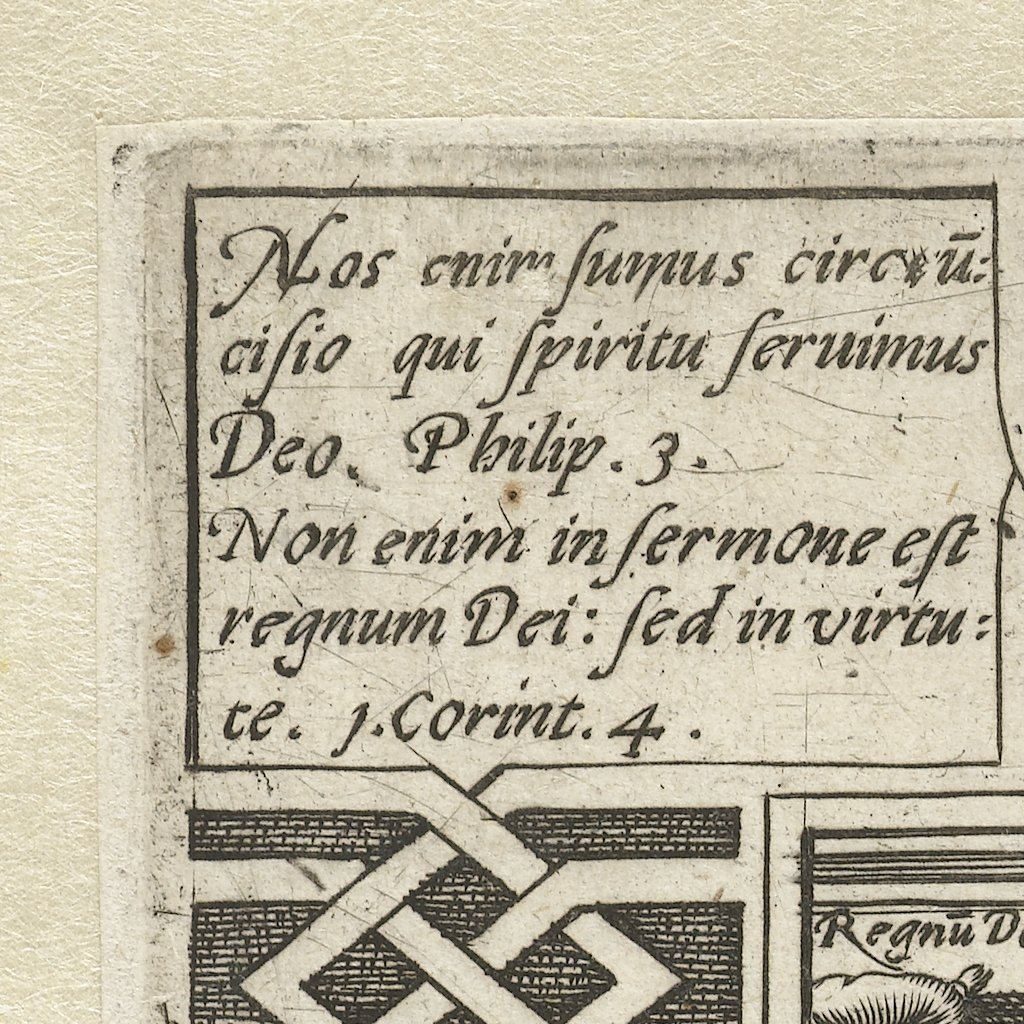 Nos enim ſumus circūū:
ciſio qui ſpiritu ſeruimus
Deo. Philip. 3.
Non enim in ſermone eſt
regnum Dei: ſed in virtu:
te. 1. Corint. 4.
Regnū